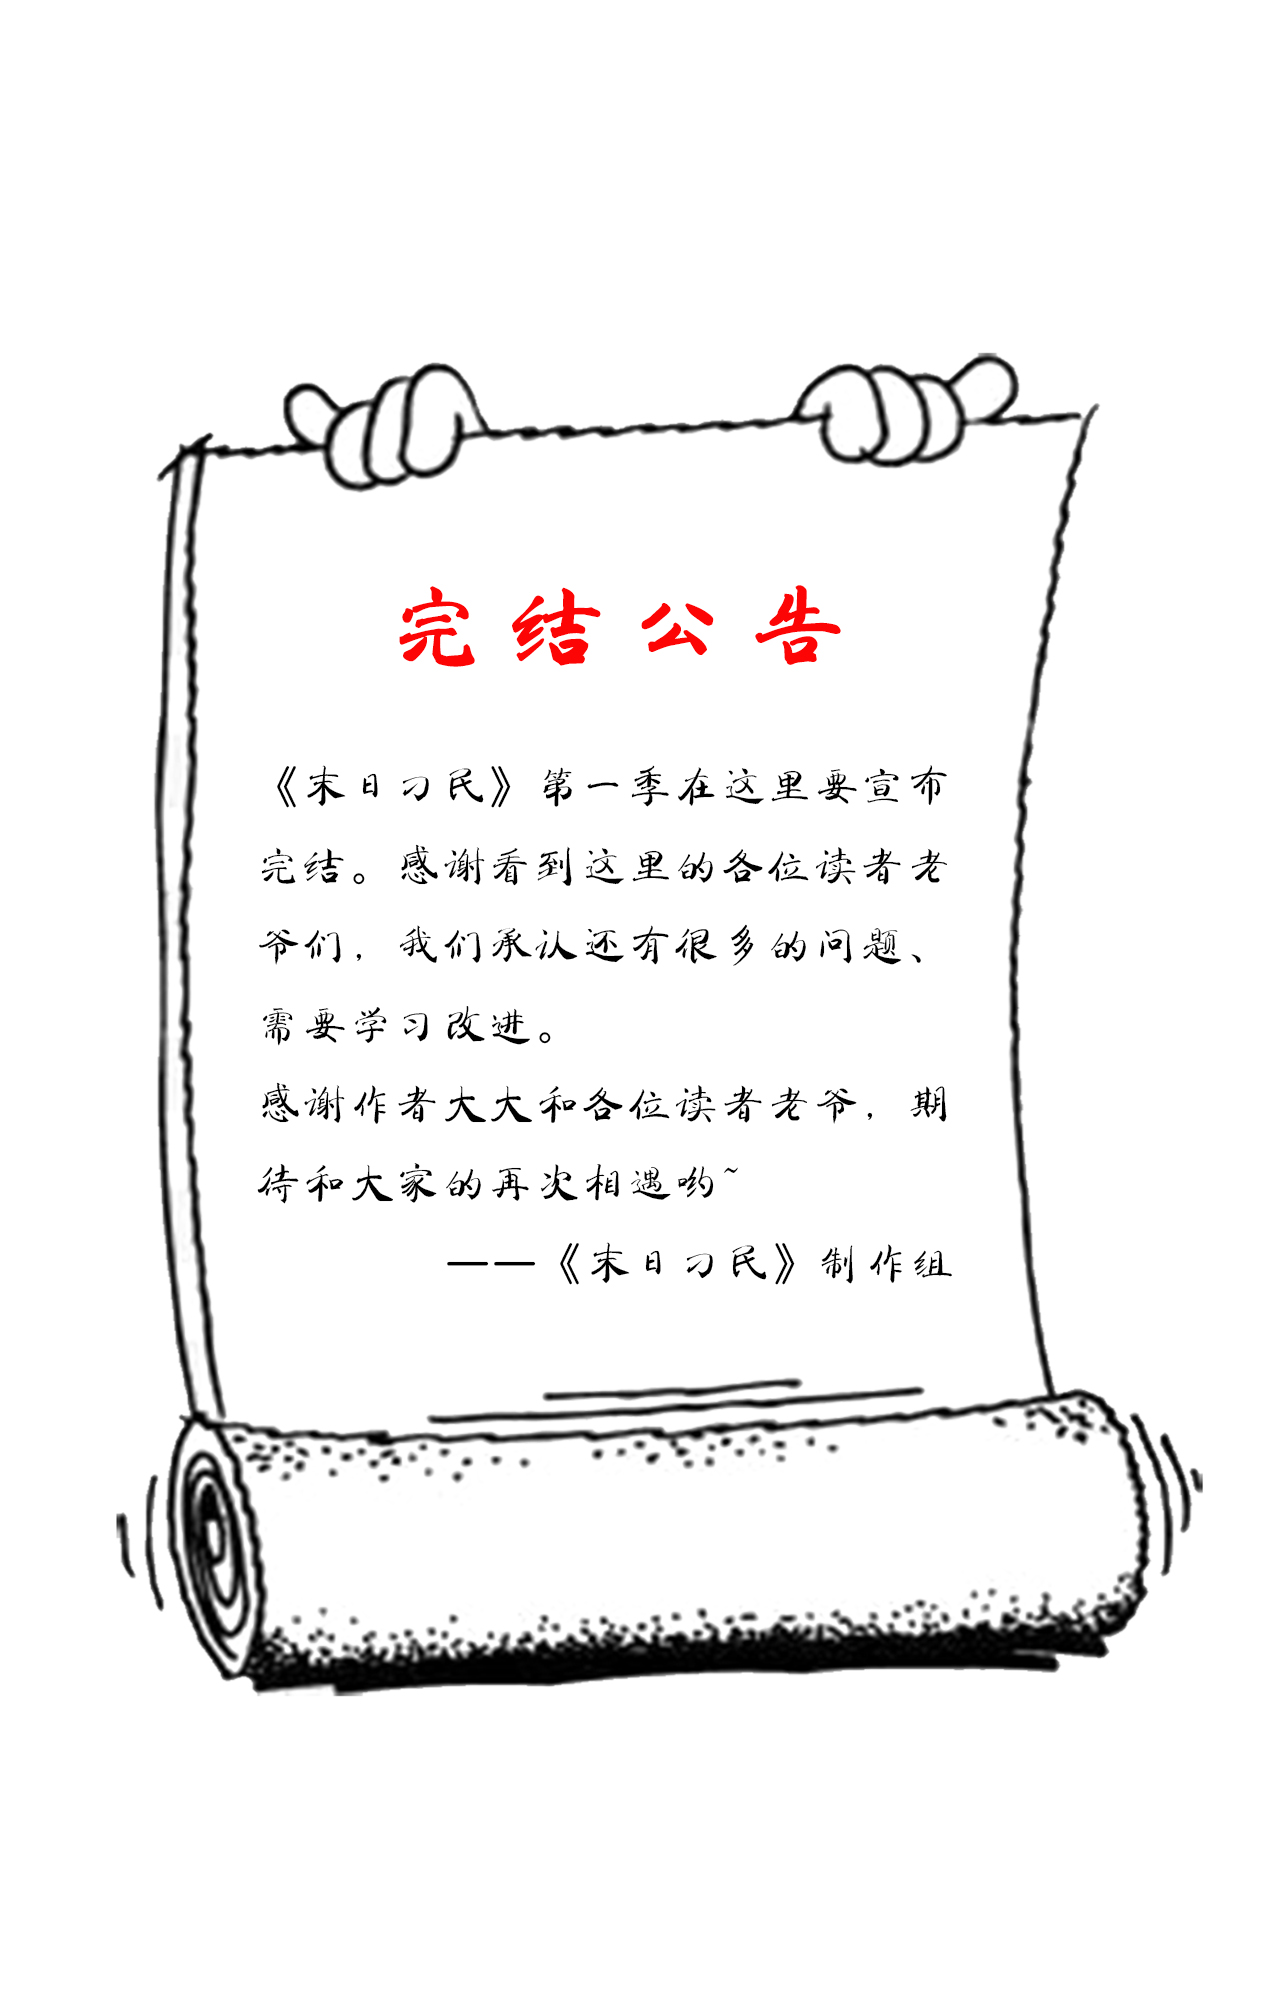 完结公告
《末日刁民》第一季在这里要宣布
完结。感谢看到这里的各位读者老
爷们，我们承认还有很多的问题、
需要学习改进。
感谢作者大大和各位读者老爷，期
待和大家的再次相遇哟~
——《末日刁民》制作组